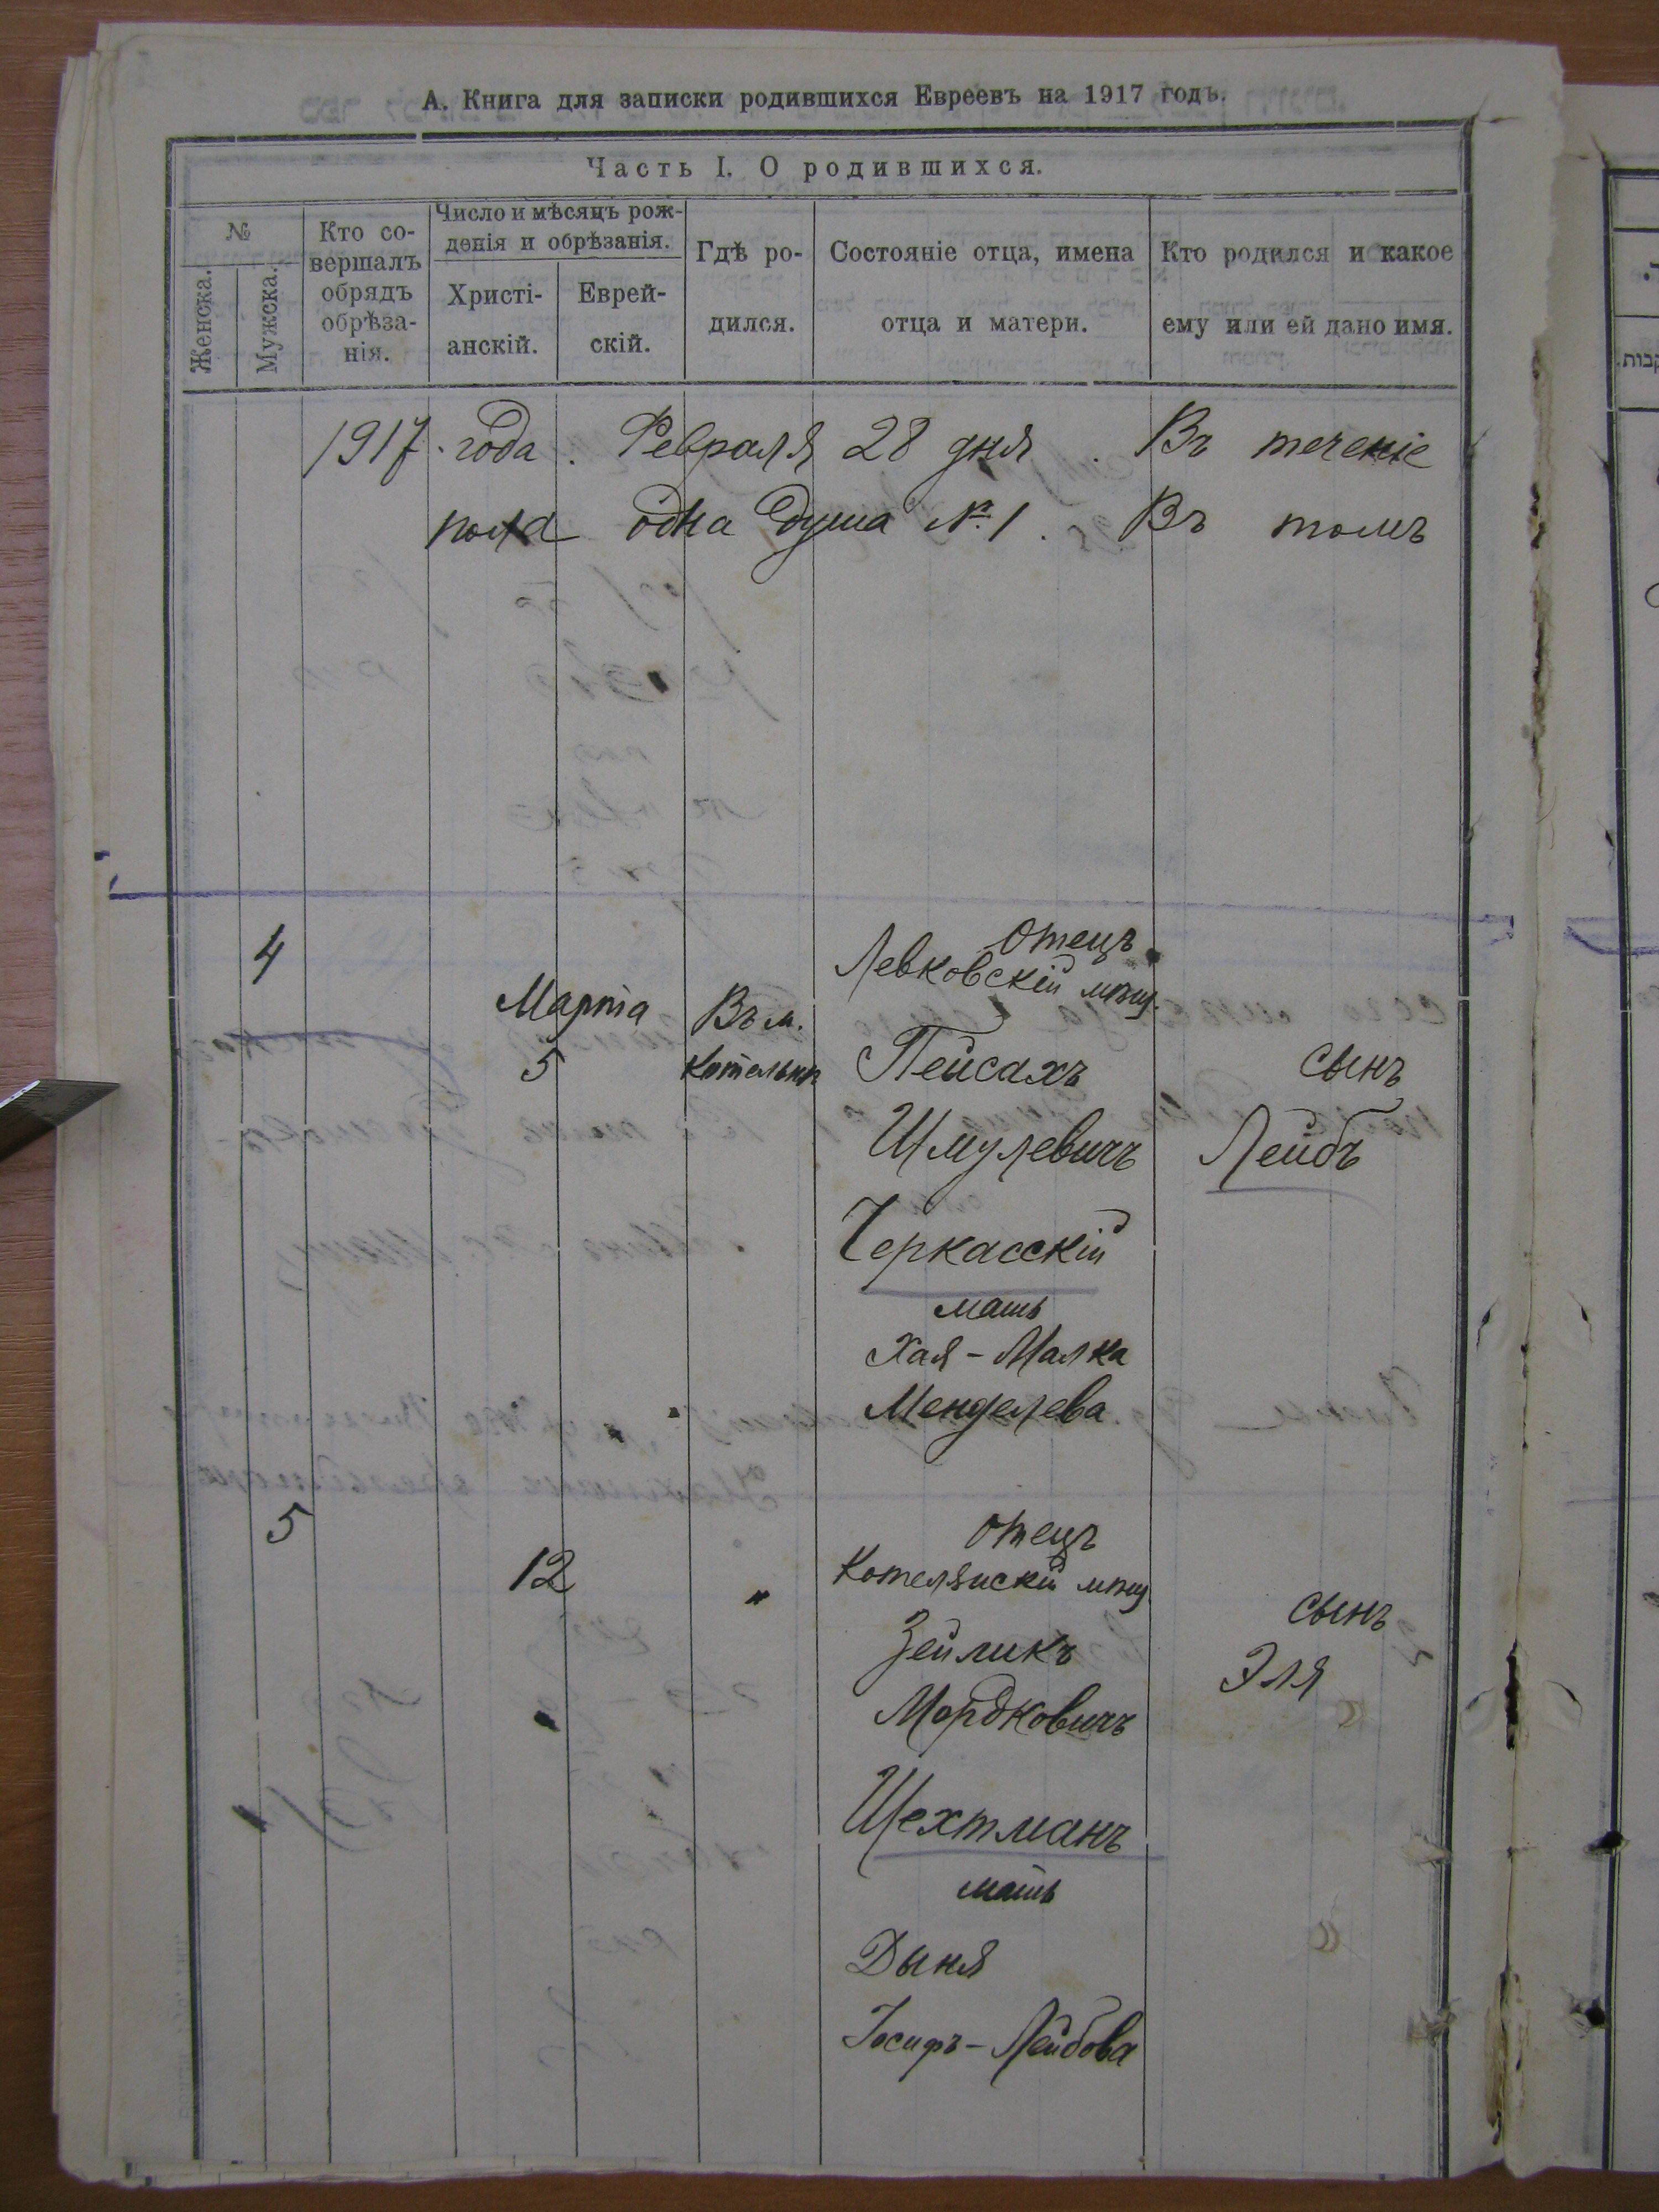 А. Книга для записки родившихся Евреевъ на 1917 годъ.
Часть I. О родившихся.
№
Женска.
Мужска.
Кто со-
вершалъ
обрядъ
обрѣза-
нія.
Число и мѣсяцъ рож-
денія и обрѣзанія.
Христі-
анскій.
Еврей-
скій.
Гдѣ ро-
дился.
Состояніе отца, имена
отца и матери.
Кто родился и какое
ему или ей дано имя.
1917 года. Февраля 28 дня. Въ теченіе
пола одна душа № 1. Въ томъ
4
Марта
5
Въ м.
Котельнѣ
Отецъ
Левковскій мѣщ.
Пейсахъ
Шмулевичъ
Черкасскій
мать
Хая-Малка
Менделева
сынъ
Лейбъ
5
12
"
Отецъ
Котелянскій мѣщ.
Зейликъ
Мордковичъ
Шехтманъ
мать
Дыня
Іосифъ-Лейбова
сынъ
Эля